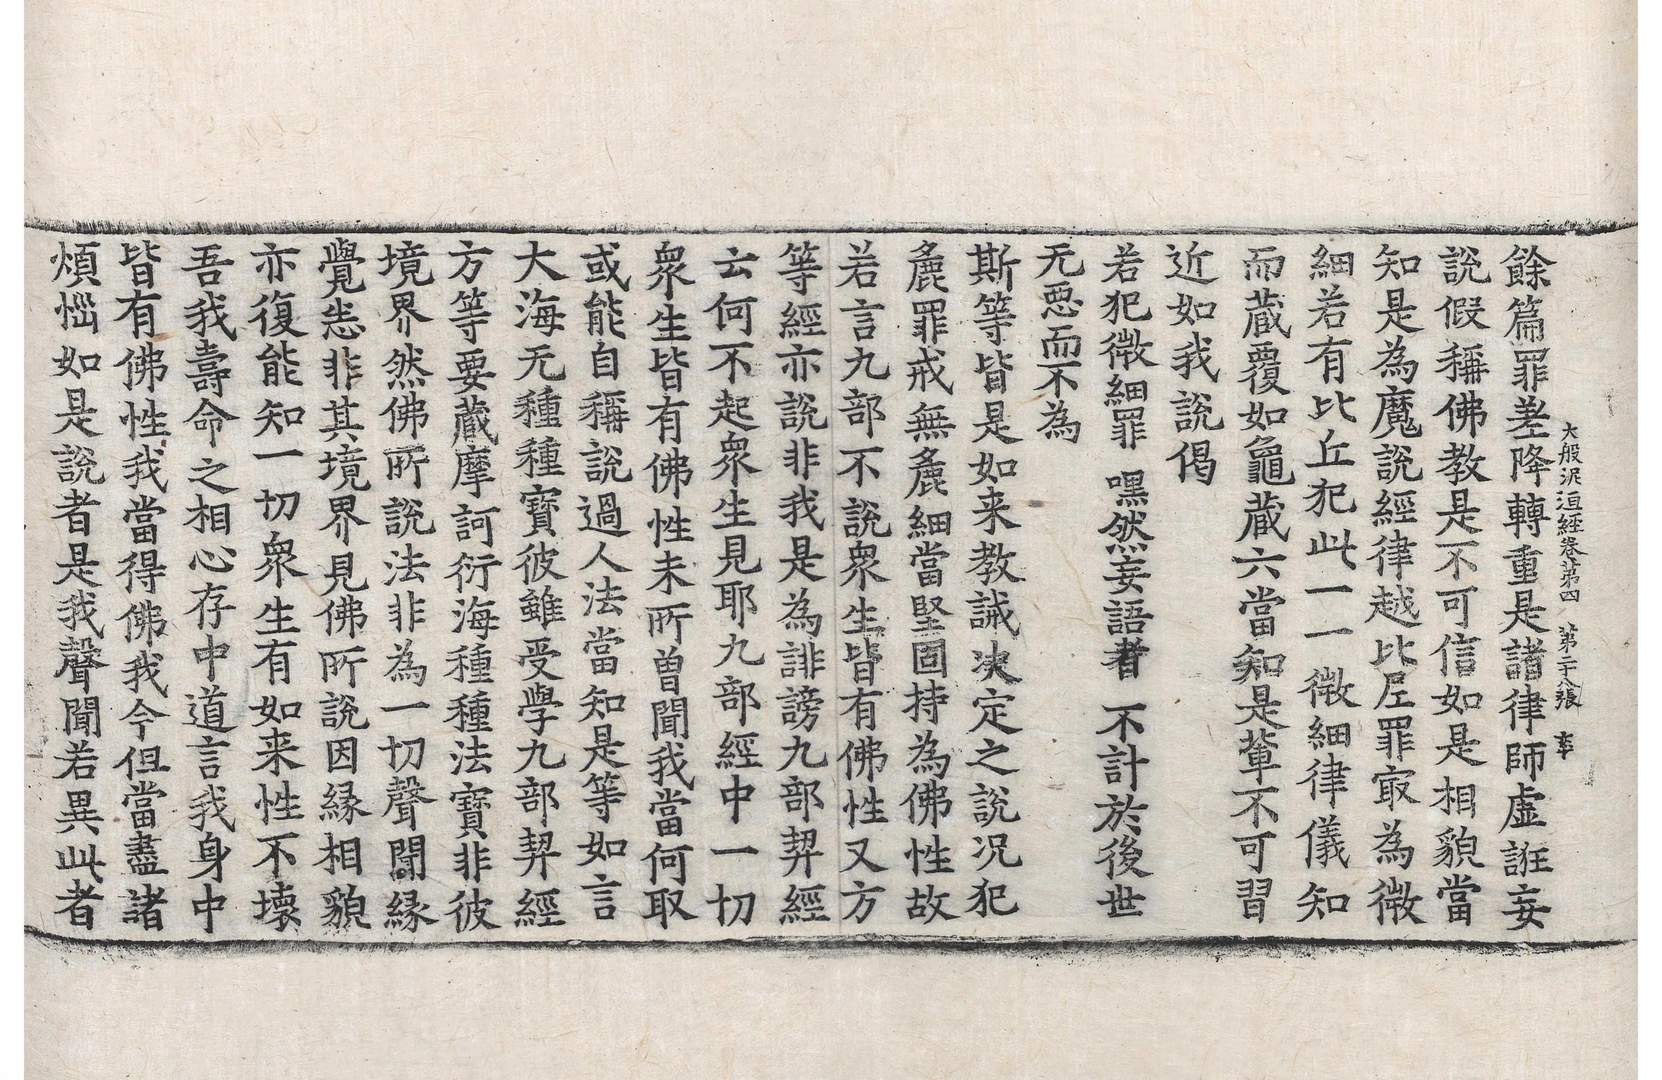 大般泥洹經卷第四 第二十八張 事
餘篇罪差降轉重是諸律師虛誑妄
說假稱佛教是不可信如是相貌當
知是為魔說經律越比丘罪㝡為微
細若有比丘犯此一一微細律儀知
而藏覆如龜藏六當知是軰不可習
近如我說偈
若犯微細罪 嘿然妄語者 不計於後世
无惡而不為
斯等皆是如来教誡决定之說況犯
麁罪戒無麁細當堅固持為佛性故
若言九部不說衆生皆有佛性又方
等經亦說非我是為誹謗九部契經
云何不起衆生見耶九部經中一切
衆生皆有佛性未所曾聞我當何取
或能自稱說過人法當知是等如言
大海无種種寶彼雖受學九部契經
方等要藏摩訶衍海種種法寶非彼
境界然佛所說法非為一切聲聞緣
覺悉非其境界見佛所說因緣相貌
亦復能知一切衆生有如来性不壞
吾我壽命之相心存中道言我身中
皆有佛性我當得佛我今但當盡諸
煩惱如是說者是我聲聞若異此者